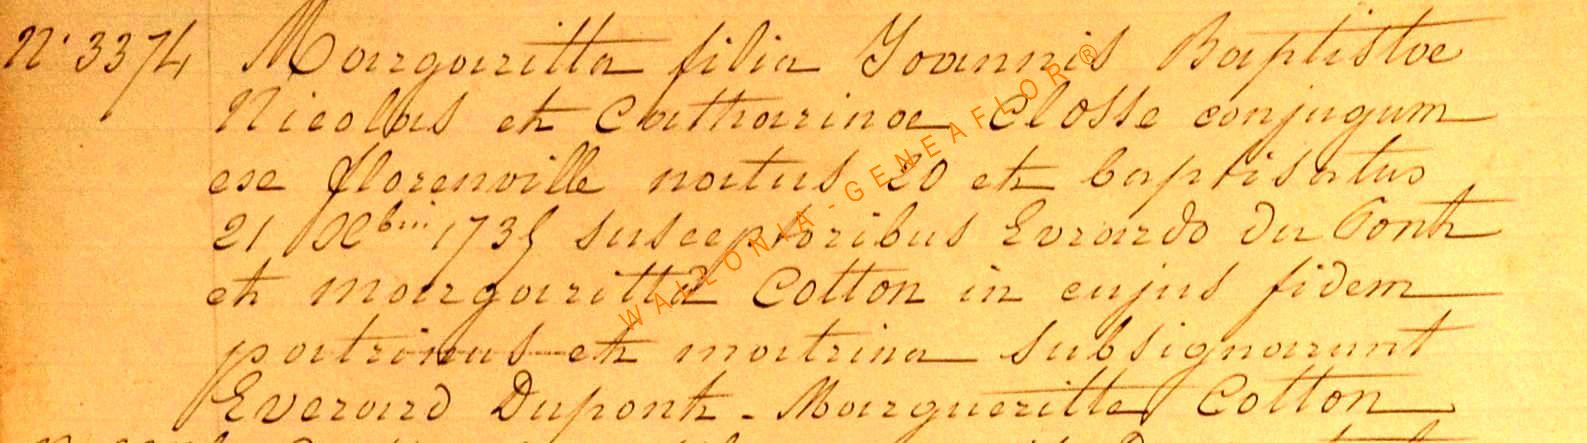 N° 3374 Margaritta filia Joannis Baptistae
Nicolas et Catharinae Closse conjugum
ex florenville natus 20 et baptisatus
21 Xbris 1735 susceptoribus Evrardo du Pont
et margaritta Cotton in cujus fidem
patrinus et matrina subsignarunt
Everard Dupont - Margueritte Cotton
WALLONIA - GENEAFLOR ®